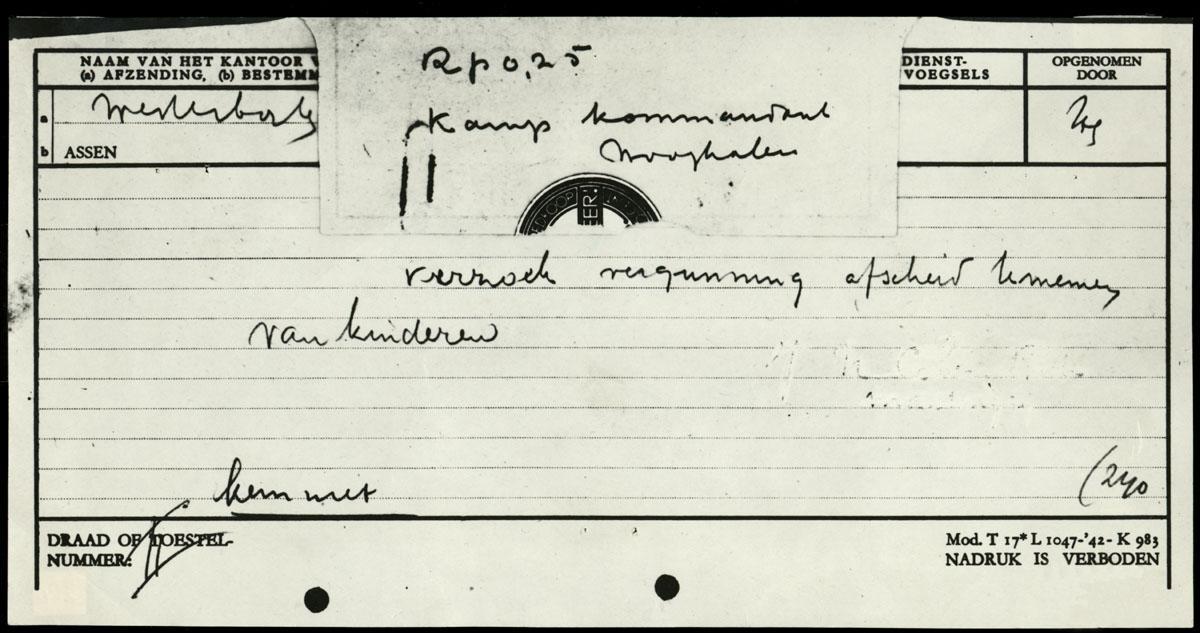 Rp 0,25
NAAM VAN HET KANTOOR V
(a) AFZENDING, (b) BESTEMM
DIENST-
VOEGSELS
OPGENOMEN
DOOR
a Westerbork
Kamp kommandant
b ASSEN
Hooghalen
verzoek vergunning afscheid te nemen
van kinderen
DRAAD OF TOESTEL-
NUMMER:
Mod. T 17* L 1047-'42- K 983
NADRUK IS VERBODEN